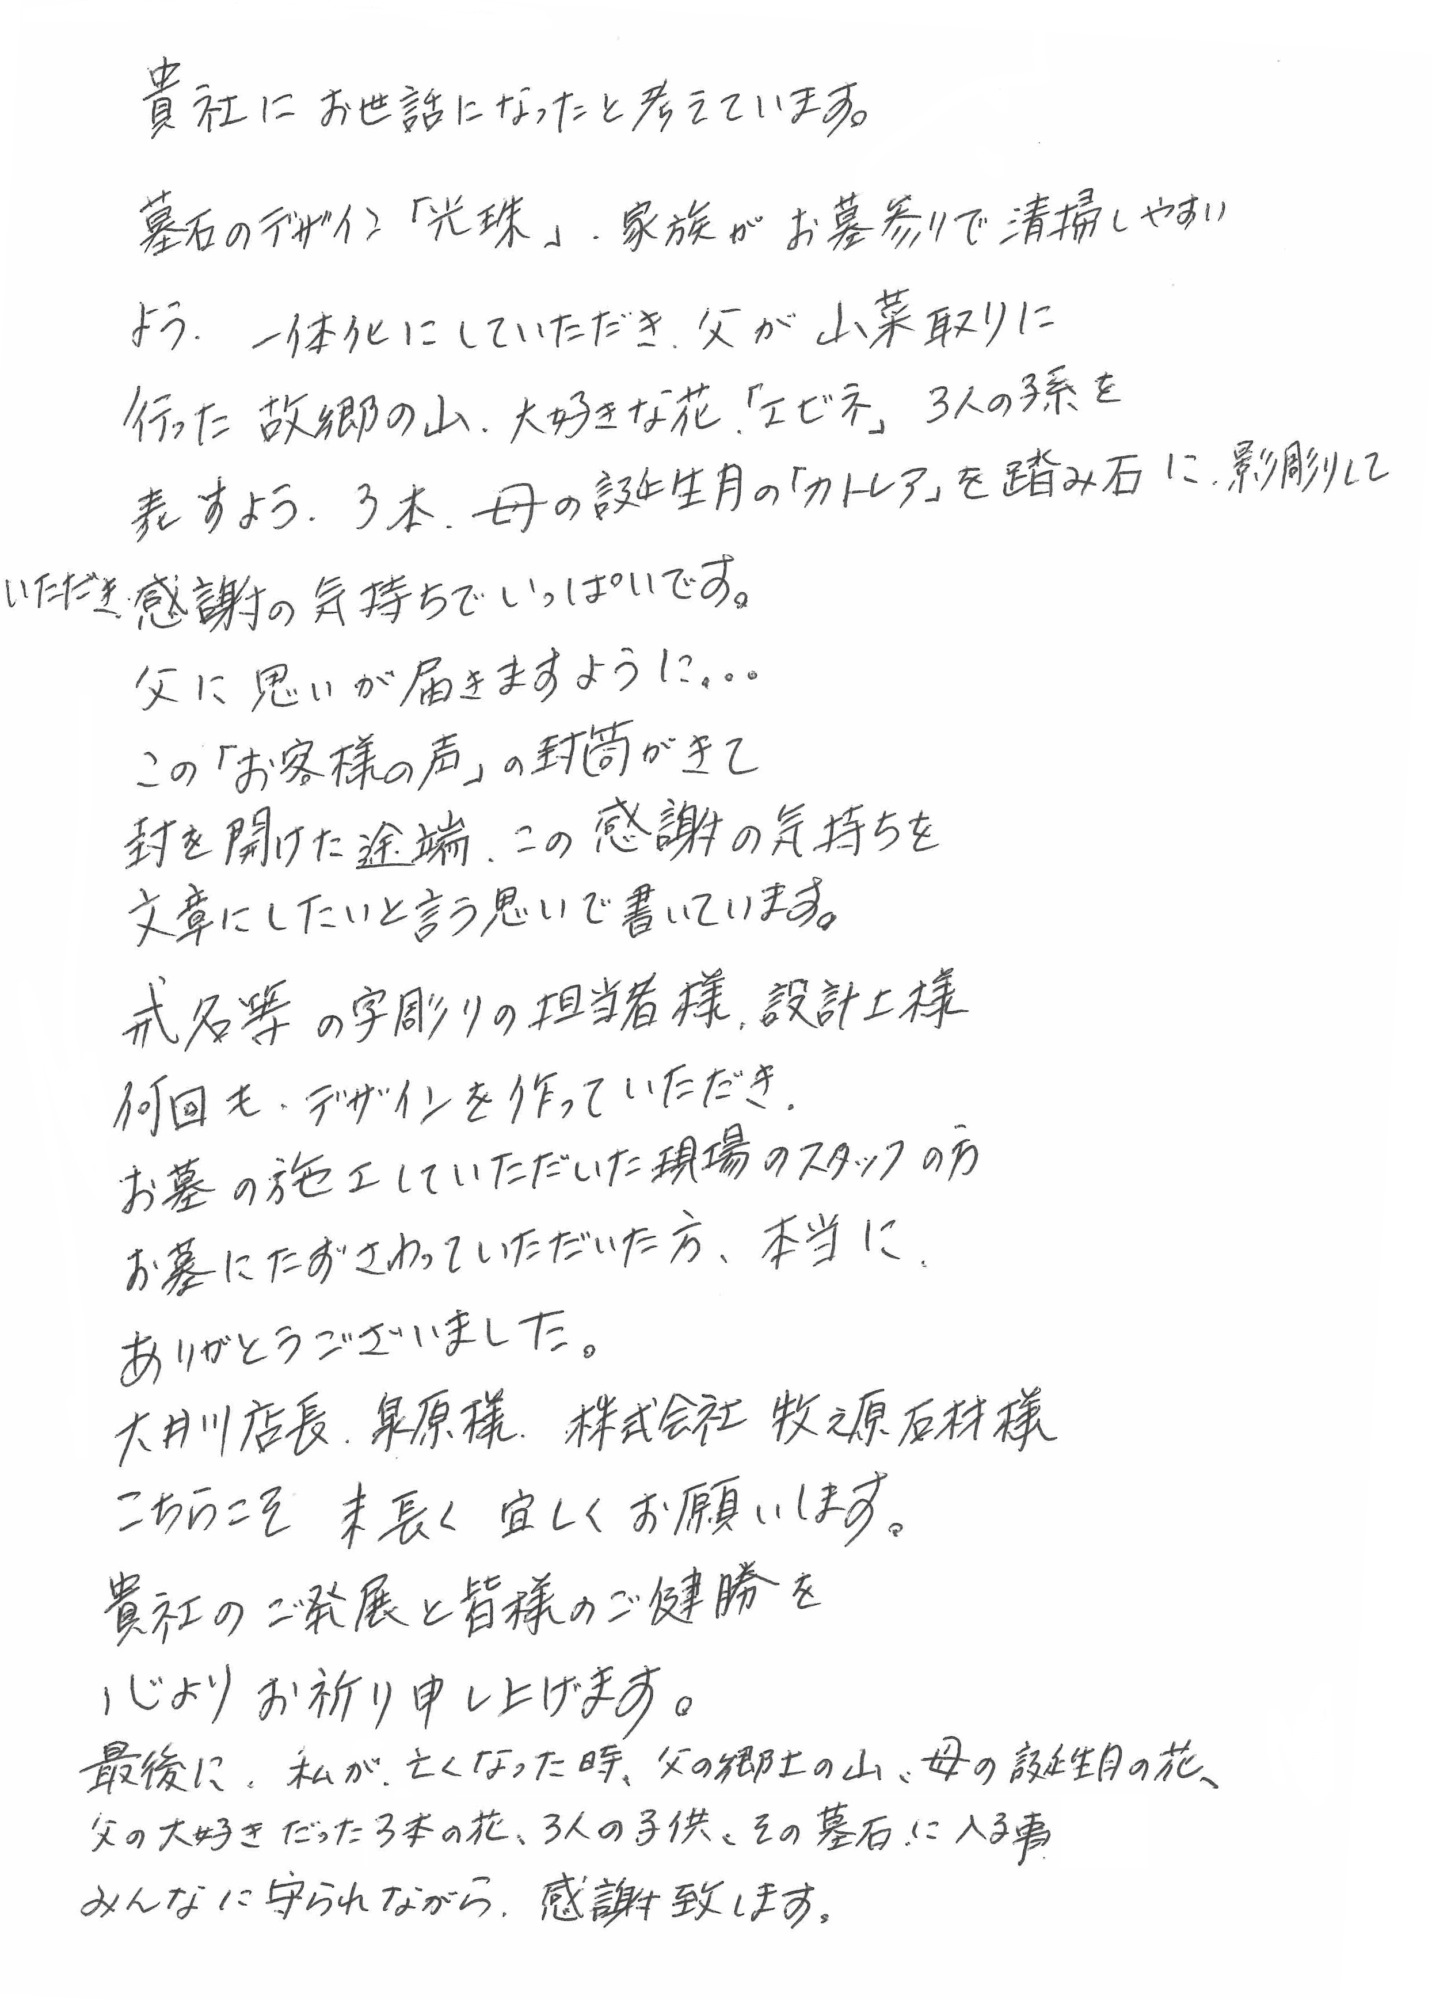 貴社にお世話になったと考えています。
墓石のデザイン「光珠」、家族がお墓参りで清掃しやすい
よう、一体化にしていただき、父が山菜取りに
行った故郷の山、大好きな花、「エビネ」3人の子孫を
表すよう、3本、母の誕生月の「カトレア」を踏み石に、影彫りして
いただき、感謝の気持ちでいっぱいです。
父に思いが届きますように...
この「お客様の声」の封筒がきて
封を開けた途端、この感謝の気持ちを
文章にしたいと言う思いで書いています。
戒名等の字彫りの担当者様、設計士様
何回も、デザインを作っていただき、
お墓の施工していただいた現場のスタッフの方
お墓にたずさわっていただいた方、本当に、
ありがとうございました。
大井川店長、泉原様、株式会社牧之原石材様
こちらこそ 末長く 宜しくお願いします。
貴社のご発展と皆様のご健勝を
心よりお祈り申し上げます。
最後に、私が、亡くなった時、父の郷土の山、母の誕生月の花、
父の大好きだった3本の花、3人の子供、その墓石に入る事
みんなに守られながら、感謝致します。